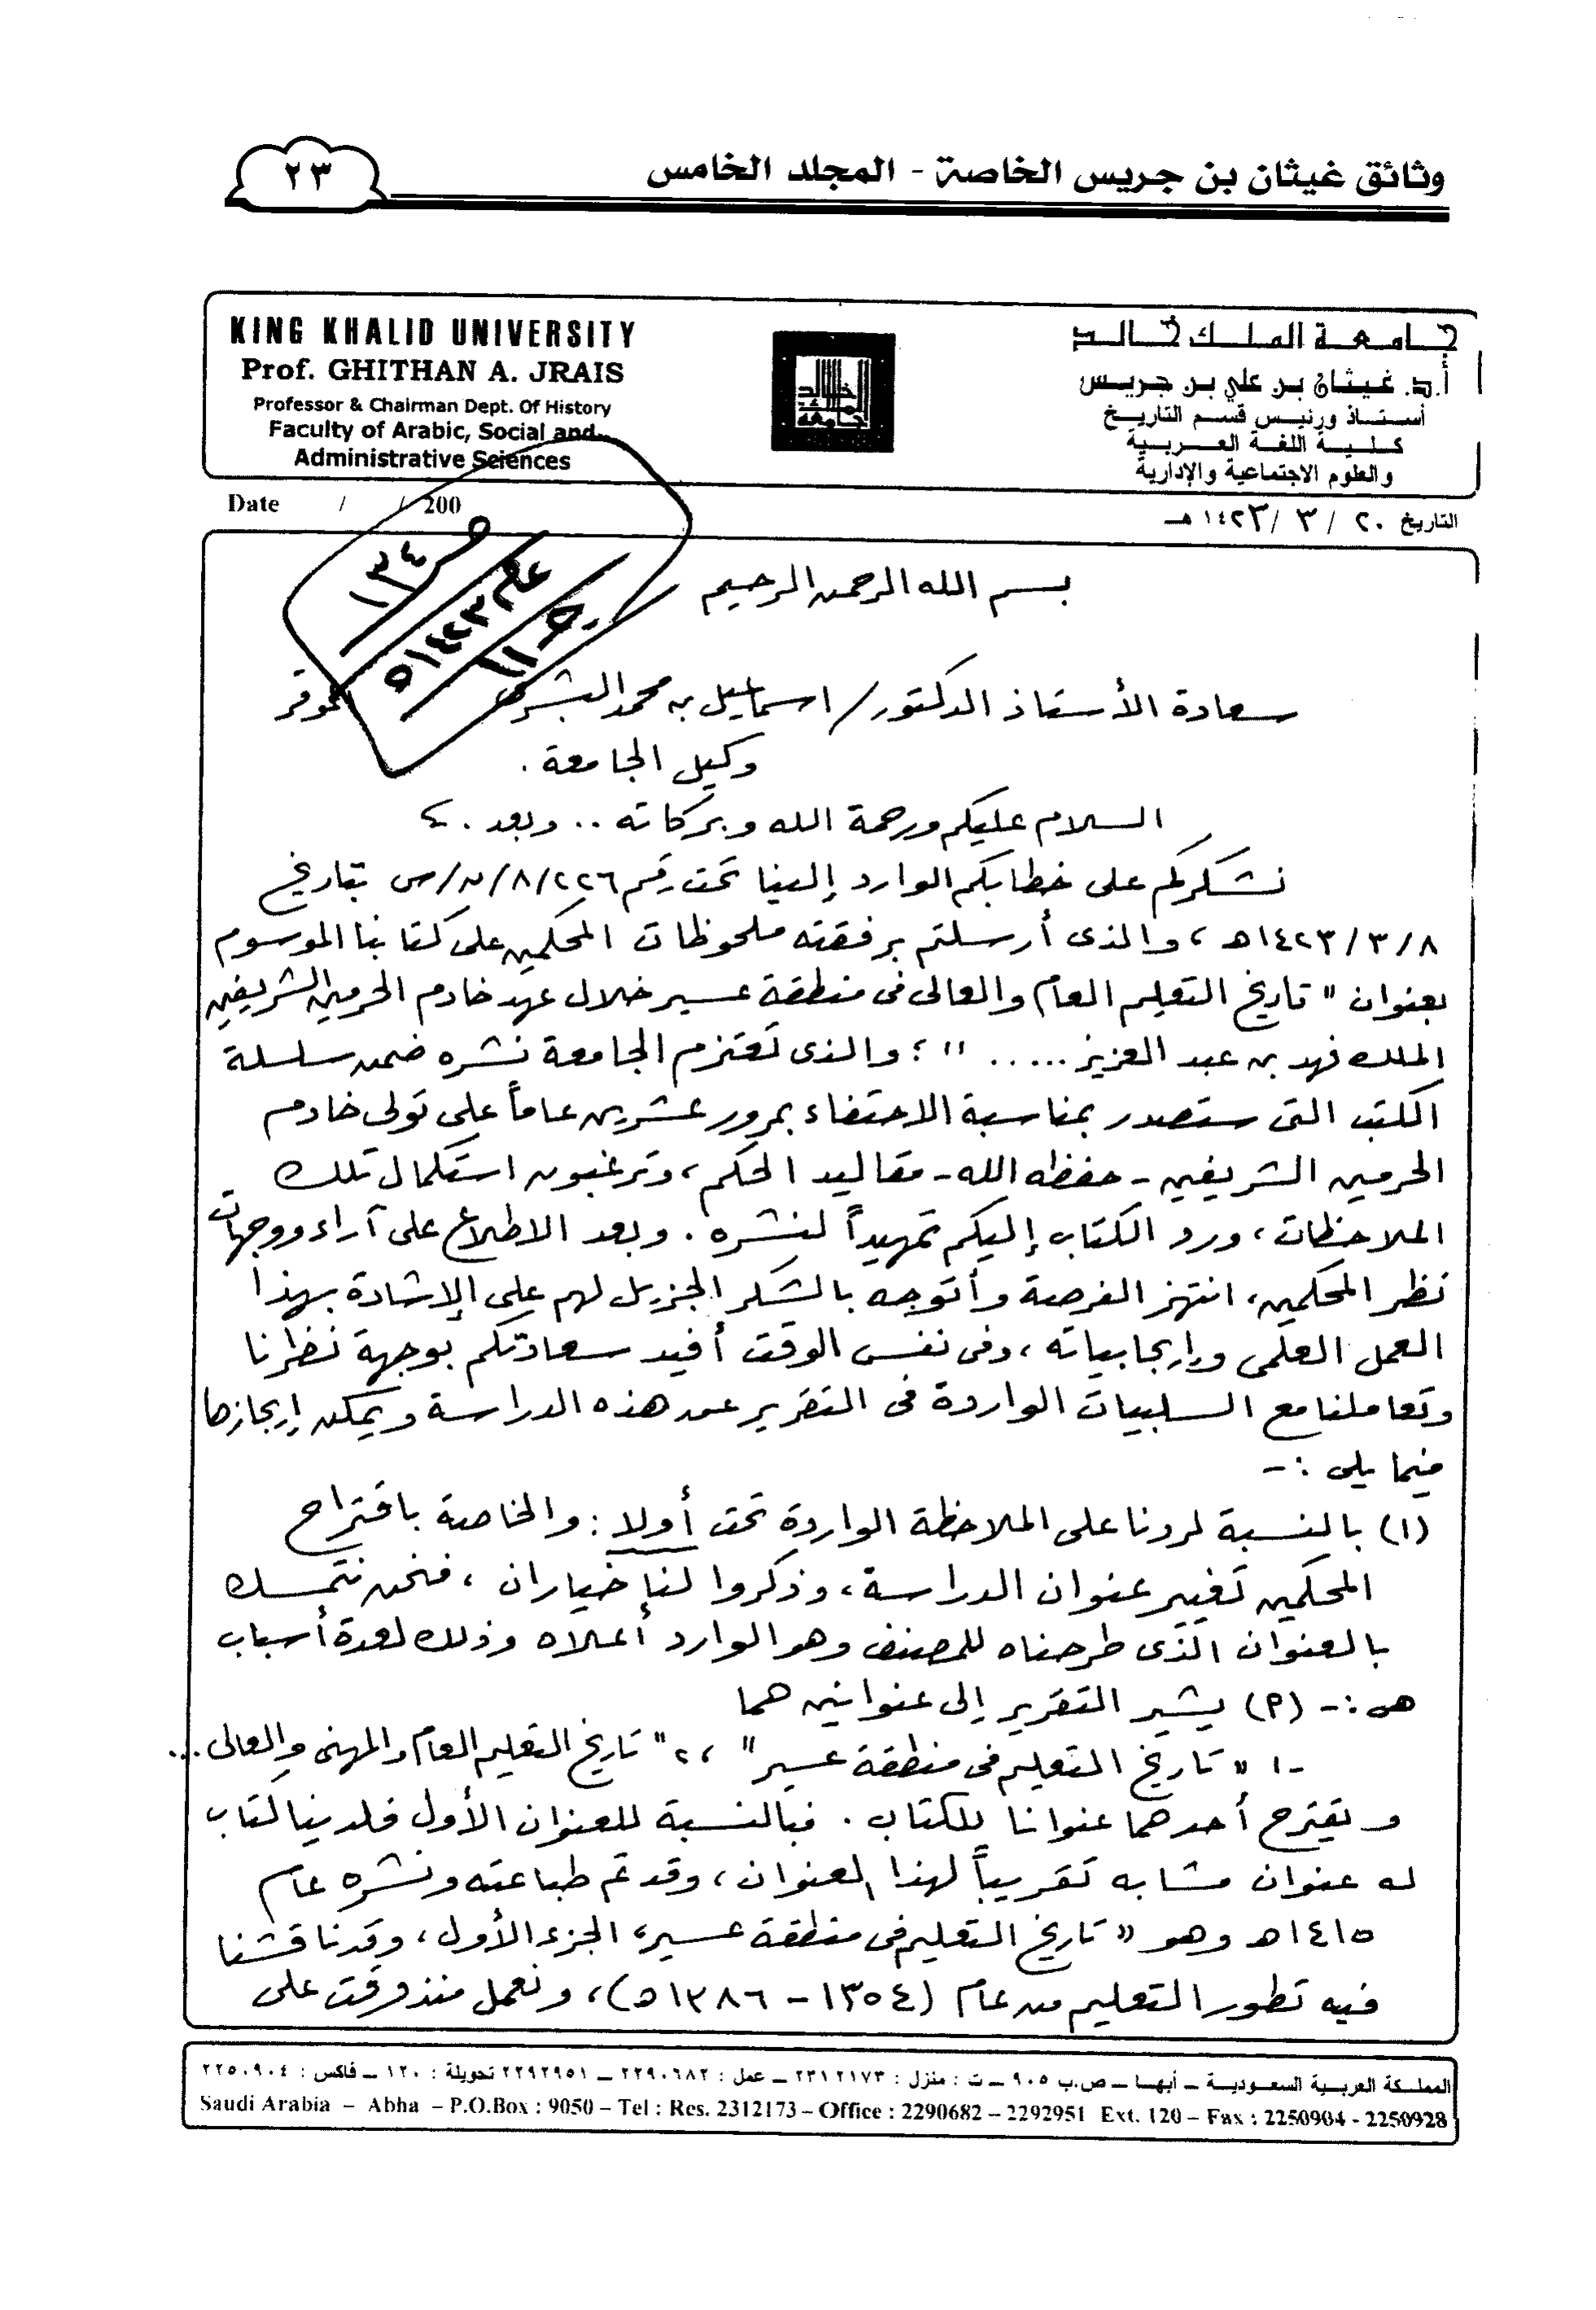 وثائق غيثان بن جريس الخاصة - المجلد الخامس
٢٣
KING KHALID UNIVERSITY
Prof. GHITHAN A. JRAIS
Professor & Chairman Dept. Of History
Faculty of Arabic, Social and
Administrative Sciences
جامعة الملك خالد
أ.د. غيثان بن علي بن جريس
أستاذ ورئيس قسم التاريخ
كلية اللغة العربية
والعلوم الاجتماعية والإدارية
Date / / 200
التاريخ ٢٠ / ٣ / ١٤٢٣هـ
١٣٤
عام
١٤٢٣هـ
بسم الله الرحمن الرحيم
سعادة الأستاذ الدكتور / اسماعيل بن محمد البشري الموقر
وكيل الجامعة .
السلام عليكم ورحمة الله وبركاته .. وبعد .
نشكركم على خطابكم الوارد إلينا تحت رقم ٨/٢٢٦/ن/س بتاريخ
١٤٢٣/٣/٨هـ ، والذى أرسلتم برفقته ملحوظات المحكمين على كتابنا الموسوم
بعنوان " تاريخ التعليم العام والعالى فى منطقة عسير خلال عهد خادم الحرمين الشريفين
الملك فهد بن عبد العزيز ..... " ؛ والذى تعتزم الجامعة نشره ضمن سلسلة
الكتب التى ستصدر بمناسبة الاحتفاء بمرور عشرين عاماً على تولى خادم
الحرمين الشريفين - حفظه الله - مقاليد الحكم ، وترغبون استكمال تلك
الملاحظات ، ورد الكتاب إليكم تمهيداً لنشره . وبعد الاطلاع على آراء ووجهات
نظر المحكمين ، انتهز الفرصة وأتوجه بالشكر الجزيل لهم على الإشادة بهذا
العمل العلمى وإيجابياته ، وفى نفس الوقت أفيد سعادتكم بوجهة نظرنا
وتعاملنا مع السلبيات الواردة فى التقرير عن هذه الدراسة ويمكن إيجازها
فيما يلى :-
(١) بالنسبة لردنا على الملاحظة الواردة تحت أولا : والخاصة باقتراح
المحكمين تغيير عنوان الدراسة ، وذكروا لنا خياران ، فنحن نتمسك
بالعنوان الذى طرحناه للمصنف وهو الوارد أعلاه وذلك لعدة أسباب
هى :- (م) يشير التقرير إلى عنوانين هما
١- " تاريخ التعليم فى منطقة عسير " ، ٢ " تاريخ التعليم العام والمهنى والعالى ...
ويقترح أحدهما عنوانا للكتاب . فبالنسبة للعنوان الأول فلدينا كتاب
له عنوان مشابه تقريباً لهذا العنوان ، وقد تم طباعته ونشره عام
١٤١٥هـ وهو " تاريخ التعليم فى منطقة عسير ، الجزء الأول ، وقد ناقشنا
فيه تطور التعليم من عام (١٣٥٤ - ١٣٨٦هـ) ، ونعمل منذ وقت على
المملكة العربية السعودية – أبهـا – ص.ب ٩٠٥ – ت : منزل : ٢٣١٢١٧٣ – عمل : ٢٢٩٠٦٨٢ – ٢٢٩٢٩٥١ تحويلة : ١٢٠ – فاكس : ٢٢٥٠٩٠٤
Saudi Arabia – Abha – P.O.Box : 9050 – Tel : Res. 2312173 – Office : 2290682 – 2292951 Ext. 120 – Fax : 2250904 - 2250928